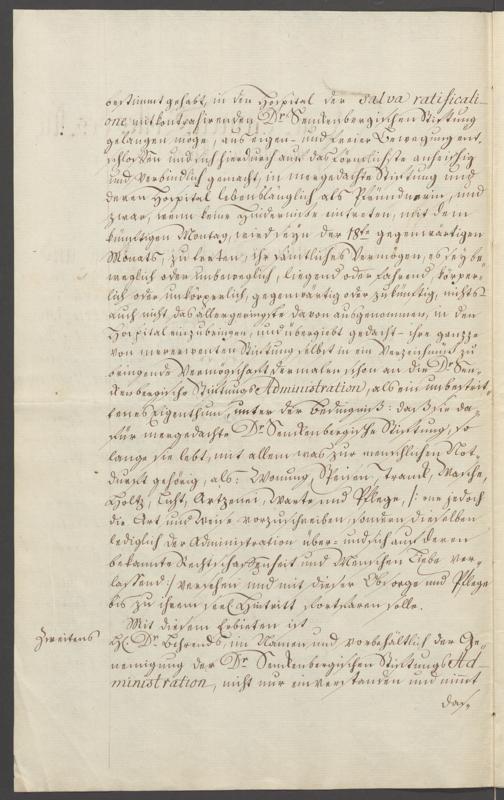 bestimmt gehabt, in den Hospital der salva ratificati-
one mitkontrahirenden Dr Senckenbergischen Stiftung
gelangen möge, aus eigen- und freier Bewegung ent-
schlossen und sich hierdurch auf das förmlichste anheischig
und verbindlich gemacht, in mergedachte Stiftung und
deren Hospital lebenslänglich als Pfründnerin, und
zwar, wenn keine Hindernisse eintreten, mit dem
künftigen Montag, wird seyn der 18te gegenwärtigen
Monats, zu treten, ihr sämtliches Vermögen, es sey be-
weglich oder unbeweglich, liegend oder fahrend, körper-
lich oder unkörperlich, gegenwärtig oder zukünftig, nichts-
auch nicht das allergeringste davon ausgenommen, in den
Hospital einzubringen, und übergiebt gedacht- ihre ganze
von mererwenten Stiftung selbst in ein Verzeichnuß zu
bringende Vermögschaft dermalen schon an die Dr Sen-
ckenbergische Stiftungs Administration, als ein unbestritt-
tenes Eigenthum, unter der Bedingniß: daß sie da-
für mergedachte Dr Senckenbergische Stiftung, so
lange sie lebt, mit allem was zur menschlichen Not-
durft gehörig, als: Wonung, Speisen, Trank, Wäsche,
Holtz, Licht, Artzenei, Warte und Pflege, /: one jedoch
die Art und Weise vorzuschreiben sondern dieselben
lediglich der Administration über- und sich auf deren
bekannte Rechtschaffenheit und Menschen Liebe ver-
lassend :/ versehen und mit dieser Obsorge und Pflege
bis zu ihrem seel. Hintritt fortfaren solle.
Mit diesem Erbieten ist
Zweitens
H. Dr. Behrends, im Namen und vorbehältlich der Ge-
nemigung der Dr. Senckenbergischen Stiftungs Ad-
ministration, nicht nur einverstanden und nimmt
das-